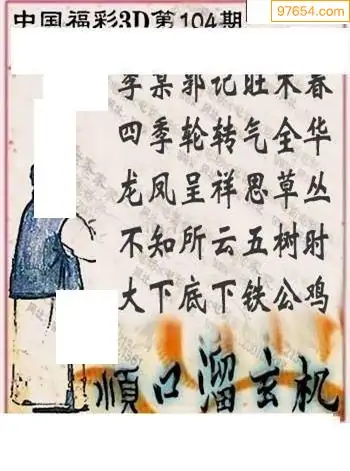 97654.com
中国福彩3D第104期
李某郭记旺木春
四季轮转气全华
龙凤呈祥思草丛
不知所云五树时
大下底下铁公鸡
顺口溜玄机